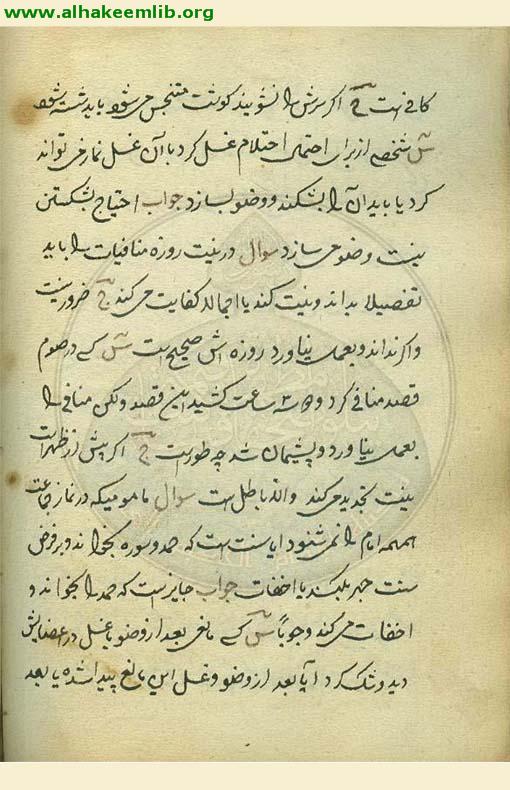 www.alhakeemlib.org
کافی است ج اکر سرش را نشویند کوشت متنجس می شود باید شسته شود
س شخصی از برای احتمال احتلام غسل کرد با آن غسل نماز می تواند
کرد یا باید آن را بشکند و وضو بسازد جواب احتیاج بشکستن
نیست وضو می سازد سوال در نیت روزه منافیات را باید
تفصیلا بداند و نیت کند یا اجمالا کفایت می کند ج ضرور نیست
و اکر نداند و بعمل نیاورد روزه اش صحیح است س کسی در صوم
قصد منافی کرد و دو سه ساعت کشید این قصد و لکن منافی را
بعمل نیاورد و پشیمان شد چه طور است ج اکر پیش از ظهر است
نیت تجدید می کند والا باطل است سوال مامومیکه در نماز جماعت
همهمه امام را نمی شنود ایا سنت است که حمد و سوره بخواند و بر فرض
سنت جهر بکند یا اخفات جواب جایز است که حمد را بخواند و
اخفات می کند وجوباً س کسی مانعی بعد از وضو یا غسل در اعضایش
دید و شک کرد آیا بعد از وضو و غسل این مانع پیدا شده یا بعد